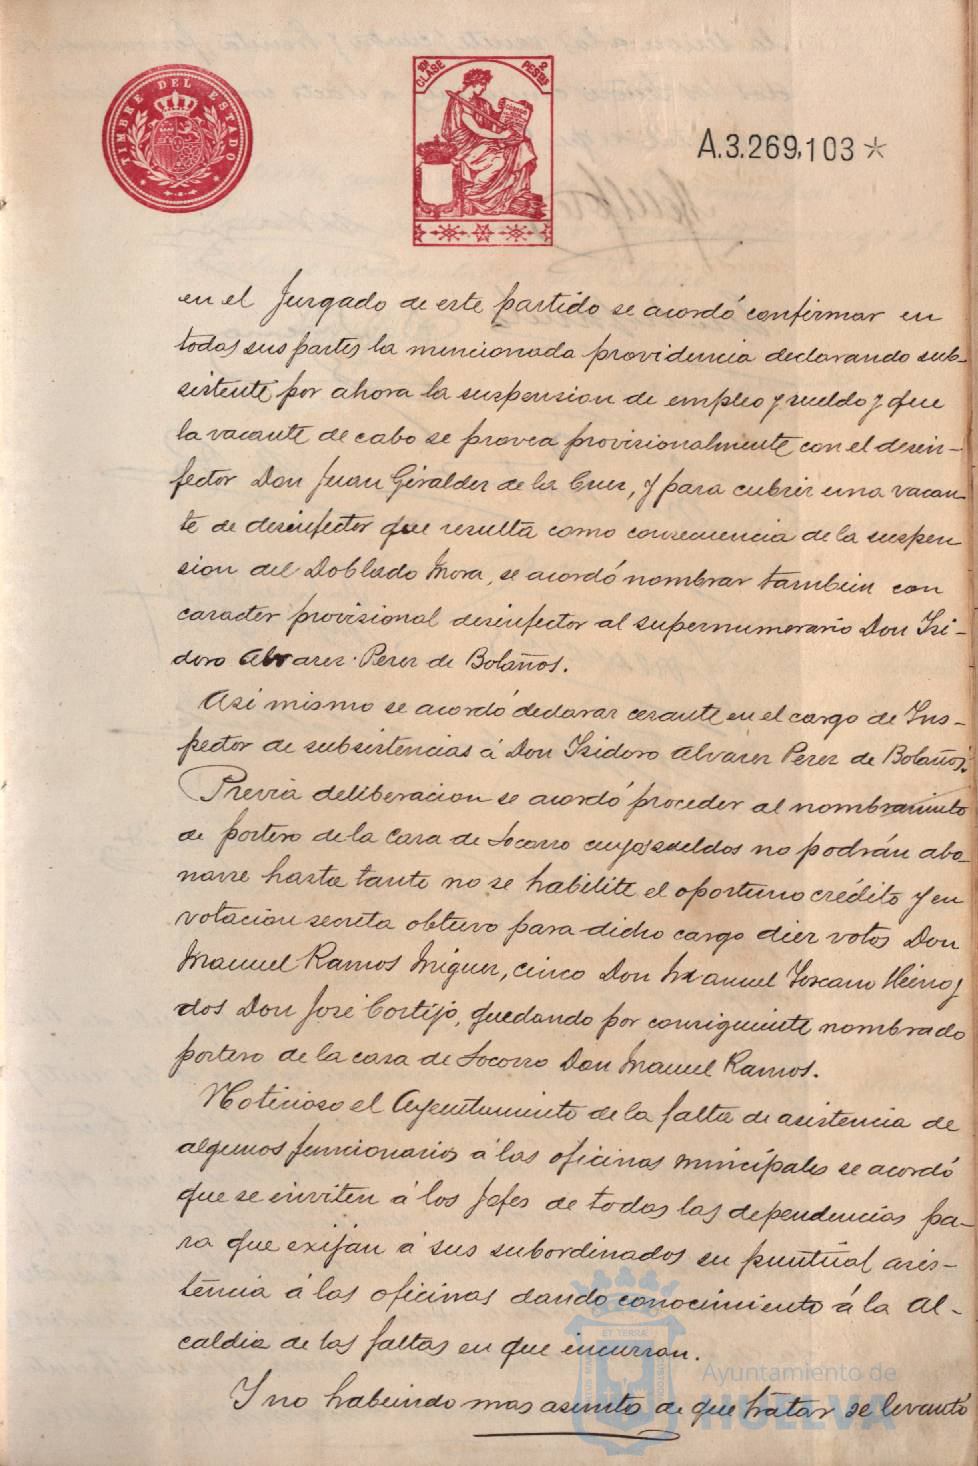 TIMBRE DEL ESTADO
10ª CLASE 2 PESTAS
A.3.269,103 *
en el Juzgado de este partido se acordó confirmar en
todas sus partes la mencionada providencia declarando sub-
sistente por ahora la suspension de empleo y sueldo y que
la vacante de cabo se provea provisionalmente con el desin-
fector Don Juan Giraldez de la Cruz, y para cubrir una vacan
te de desinfector que resulta como consecuencia de la suspen
sion del Doblado Mora, se acordó nombrar tambien con
caracter provisional desinfector al supernumerario Don Isi-
doro Alvarez Perez de Bolaños.
Asi mismo se acordó declarar cesante en el cargo de Ins-
pector de subsistencias á Don Isidoro Alvarez Perez de Bolaños.
Previa deliberacion se acordó proceder al nombramiento
de portero de la Casa de Socorro cuyos sueldos no podrán abo-
narse hasta tanto no se habilite el oportuno crédito y en
votacion secreta obtuvo para dicho cargo diez votos Don
Manuel Ramos Miguez, cinco Don Manuel Toscano y
dos Don José Cortijo, quedando por consiguiente nombrado
portero de la casa de Socorro Don Manuel Ramos.
Noticioso el Ayuntamiento de la falta de asistencia de
algunos funcionarios á las oficinas municipales se acordó
que se inviten á los Jefes de todas las dependencias pa-
ra que exijan á sus subordinados su puntual asis-
tencia á las oficinas dando conocimiento á la Al-
caldia de las faltas en que incurran.
Y no habiendo mas asunto de que tratar se levantó
Ayuntamiento de
HUELVA